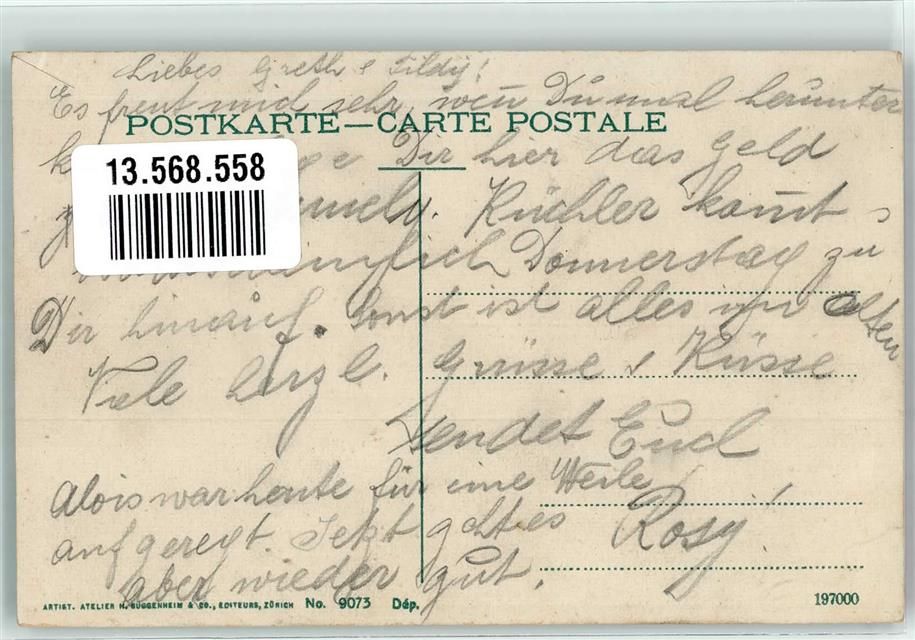 Liebes Greth & Tildy!
Es freut mich sehr, weñ Du mal herunter
POSTKARTE—CARTE POSTALE
Dir hier das Geld
13.568.558
Küchler kom̃t
Donnerstag zu
Dir hinauf. Sonst ist alles im alten
Viele herzl. Grüsse & Küsse
sendet Euch
Rosy!
Alois war heute für eine Weile
aufgeregt. Jetzt geht es
aber wieder gut.
ARTIST. ATELIER H. GUGGENHEIM & CO., EDITEURS, ZÜRICH No. 9073 Dép.
197000